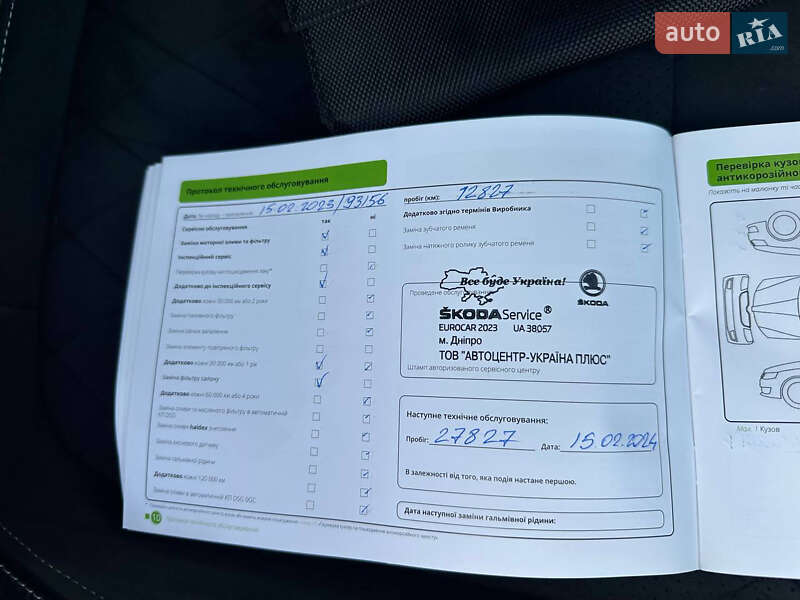 auto RIA.com
Протокол технічного обслуговування
Дата 15.02.2023/93156
так ні
Сервісне обслуговування
Заміна моторної оливи та фільтру
Інспекційний сервіс
Перевірка кузову на пошкодження лаку*
Додатково до інспекційного сервісу
Додатково кожні 30 000 км або 2 роки
Заміна паливного фільтру
Заміна свічок запалення
Заміна елементу повітряного фільтру
Додатково кожні 30 000 км або 1 рік
Заміна фільтру салону
Додатково кожні 60 000 км або 4 роки
Заміна оливи та масляного фільтру в автоматичній
КП DSG
Заміна оливи haldex зчеплення
Заміна гальмівної рідини
Додатково кожні 120 000 км
Заміна оливи в автоматичній КП DSG
10
Протокол технічного обслуговування
пробіг (км): 12827
Додатково згідно термінів Виробника
Заміна зубчатого ременя
Заміна натяжного ролику зубчатого ременя
Проведене обслуговування
Все буде Україна!
ŠKODA
ŠKODA Service®
EUROCAR 2023 UA 38057
м. Дніпро
ТОВ "АВТОЦЕНТР-УКРАЇНА ПЛЮС"
Штамп авторизованого сервісного центру
Наступне технічне обслуговування:
Пробіг: 27827 Дата: 15.02.2024
В залежності від того, яка подія настане першою.
Дата наступної заміни гальмівної рідини:
Перевірка кузов
антикорозійног
Покажіть на малюнку ті ча
Мал. 1 Кузов